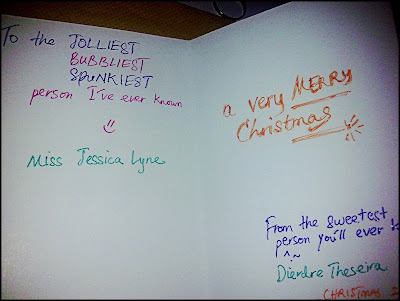 To the JOLLIEST
BUBBLIEST
SPUNKIEST
person I've ever known
Miss Jessica Lyne
a very MERRY
Christmas
From the sweetest
person you'll ever
Dierdre Theseira
CHRISTMAS